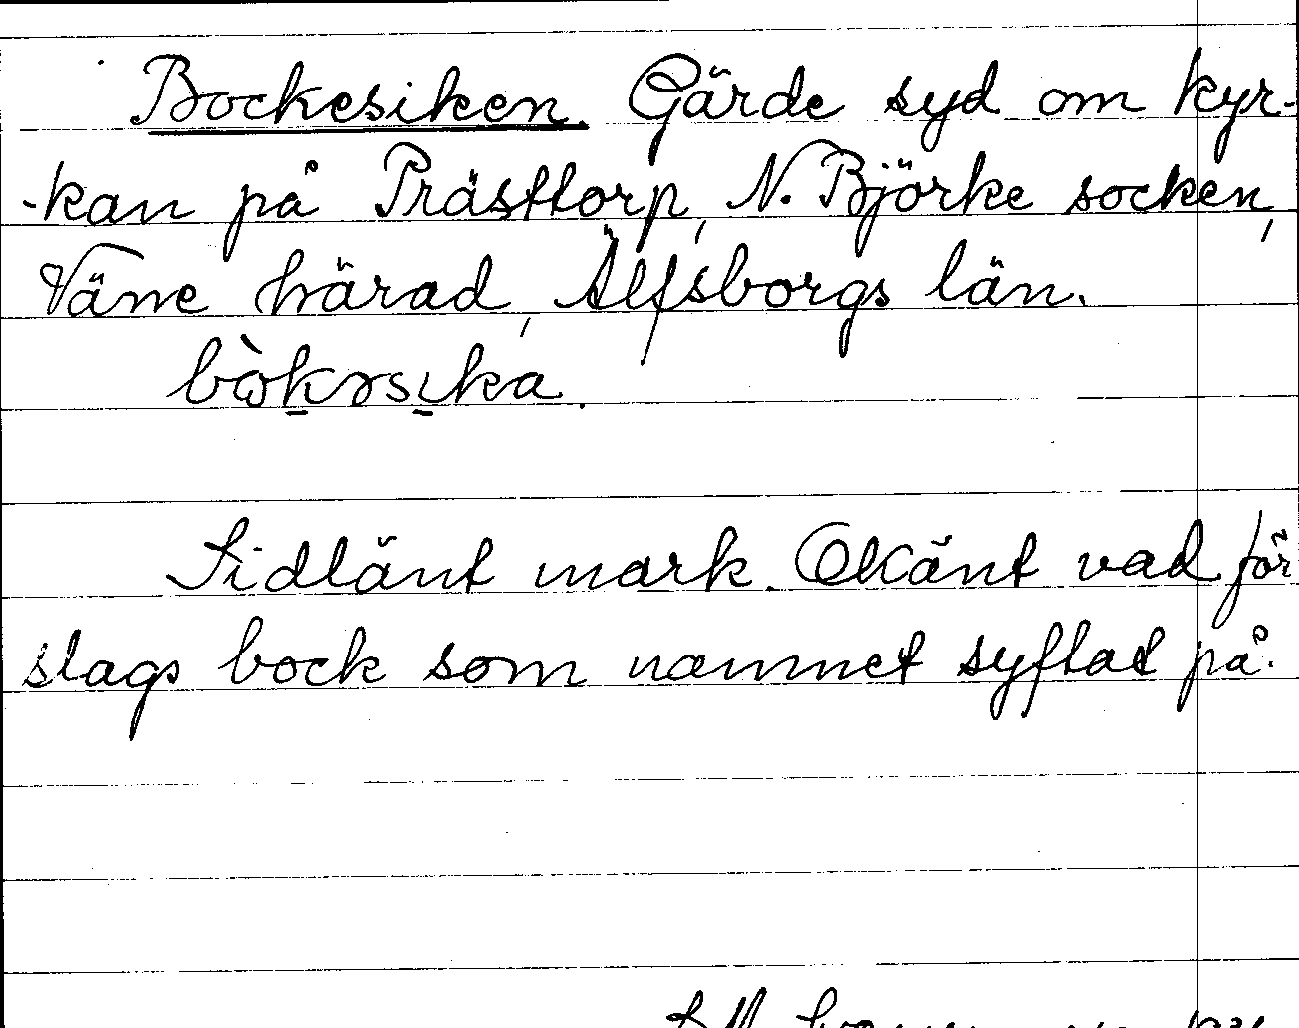 Bockesiken. Gärde syd om kyr-
-kan på Prästtorp, N. Björke socken,
Väne härad, Älfsborgs län.
Sidlänt mark. Okänt vad för
slags bock som namnet syftat på.